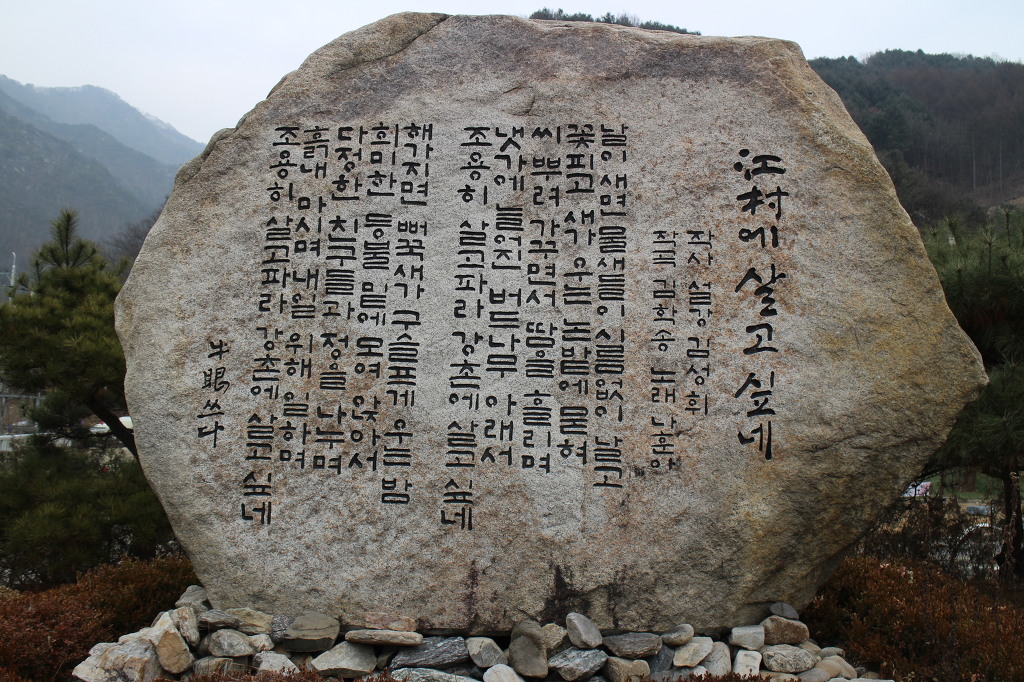 江村에 살고 싶네
작사 설강 김성휘
작곡 김학송 노래 나훈아
날이새면 물새들이 시름없이 날고
꽃피고 새가 우는 논밭에 묻혀
씨뿌려 가꾸면서 땀을 흘리며
냇가에 늘어진 버드나무 아래서
조용히 살고파라 강촌에 살고 싶네
해가지면 뻐꾹새가 구슬프게 우는 밤
희미한 등불 밑에 모여 앉아서
다정한 친구들과 정을 나누며
흙내 마시며 내일 위해 일하며
조용히 살고파라 강촌에 살고 싶네
쓰다